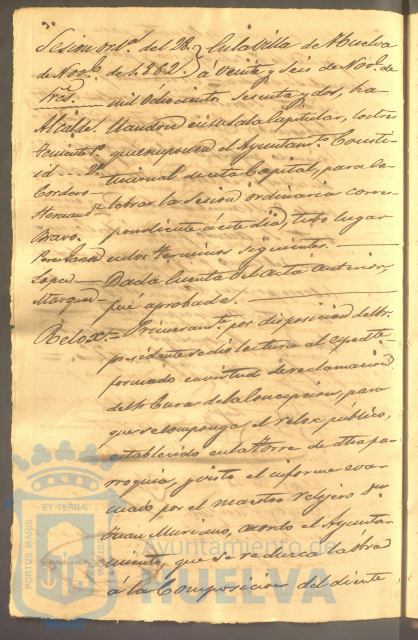 Sesion ord.ª del 28
de Nov.e de 1.862.
Sres.
Alcalde.
Teniente 1º
id. 2º
Cordero
Hernand.z
Bravo.
Lopez
Marquez
En la Villa de Huelva
á Veinte y Seis de Nov.e de
mil ochocientos sesenta y dos, ha-
llandose en su sala Capitular, los Sres
que componen el Ayuntam.to Consti-
tucional de esta Capital, para ce-
lebrar la Sesion ordinaria corres-
pondiente á este dia, tubo lugar
en los terminos siguientes.
Dada cuenta del acta anterior,
fué aprobada.
Relox.
Primeram.te por disposicion del Sr.
presidente se dio lectura al espedte
formado en virtud de reclamacion
del Sr. Cura de la Concepcion, para
que se componga, el relox público,
establecido en la torre de dha pa-
rroquia, visto el informe eva-
cuado por el maestro relojero Dn.
Juan Muriano, acordó el Ayunta-
miento, que se reduzca la obra
á la Composicion del diente
PORTUS MARIS
ET TERRÆ
CUSTODIA
Ayuntamiento de
HUELVA